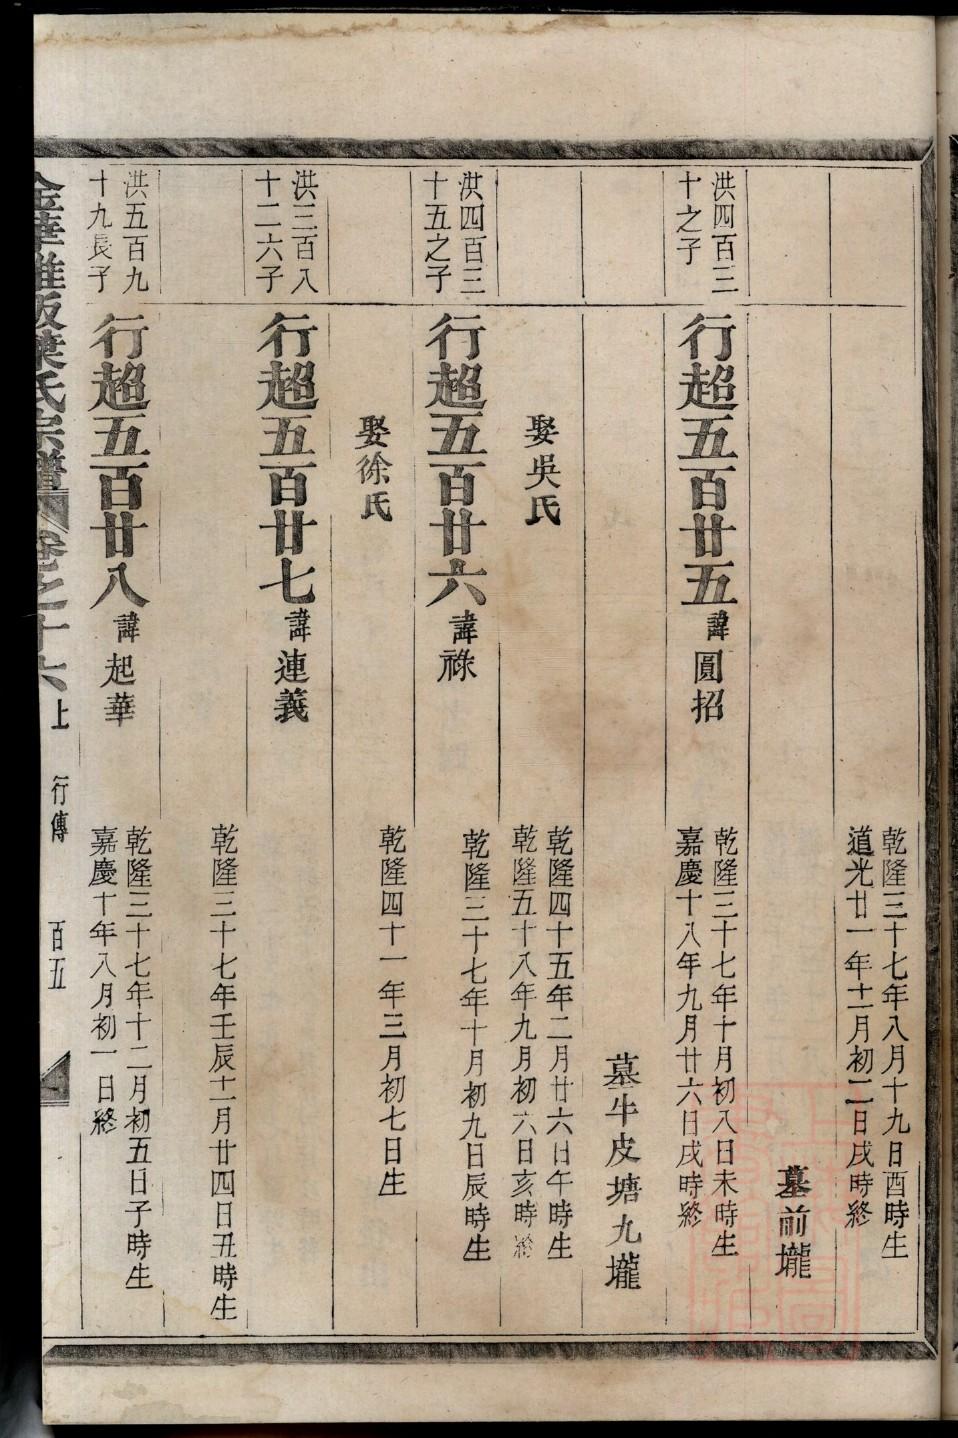 乾隆三十七年八月十九日酉時生
道光廿一年十二月初二日戌時終
墓前壠
洪四百三
十之子
行超五百廿五
諱圓招
乾隆三十七年十月初八日未時生
嘉慶十八年九月廿六日戌時終
墓牛皮塘九壠
娶吳氏
乾隆四十五年二月廿六日午時生
乾隆五十八年九月初六日亥時終
洪四百三
十五之子
行超五百廿六
諱祿
乾隆三十七年十月初九日辰時生
娶徐氏
乾隆四十一年三月初七日生
洪三百八
十二六子
行超五百廿七
諱連義
乾隆三十七年壬辰十二月廿四日丑時生
洪五百九
十九長子
行超五百廿八
諱起華
乾隆三十七年十二月初五日子時生
嘉慶十年八月初一日終
金華雅畈葉氏宗譜
卷之十六上
行傳
百五